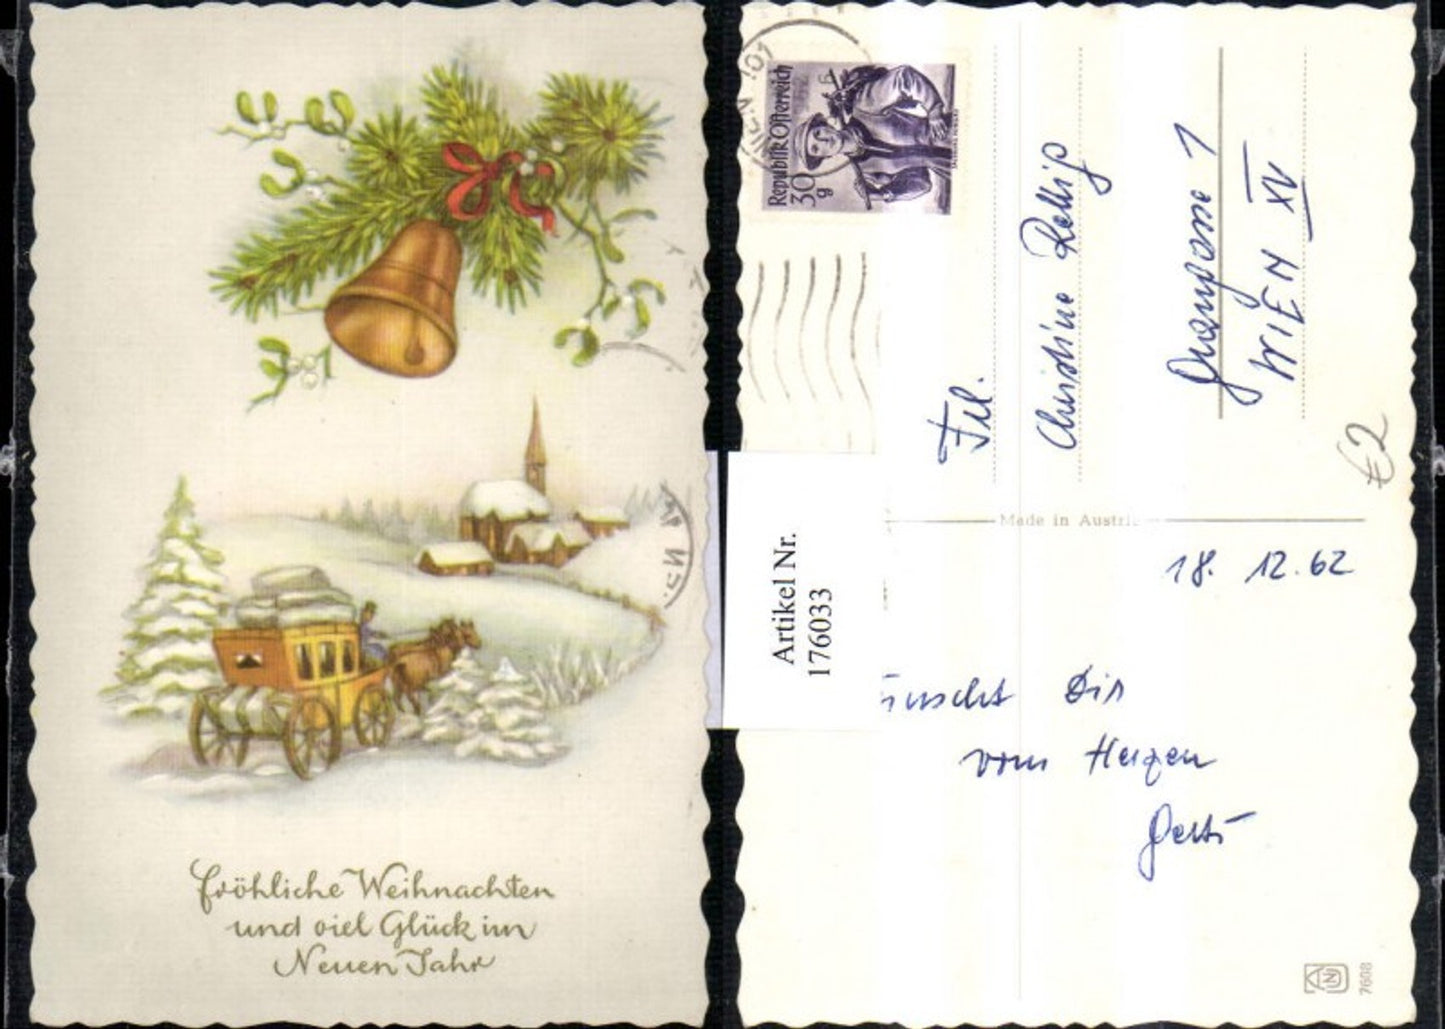 Fröhliche Weihnachten
und viel Glück im
Neuen Jahr
WIEN 101
Republik Österreich
30
g
Frl.
Christine
WIEN XV
€2
Made in Austria
Artikel Nr.
176033
18. 12. 62
ünscht Dir
vom Herzen
Gerti
7608